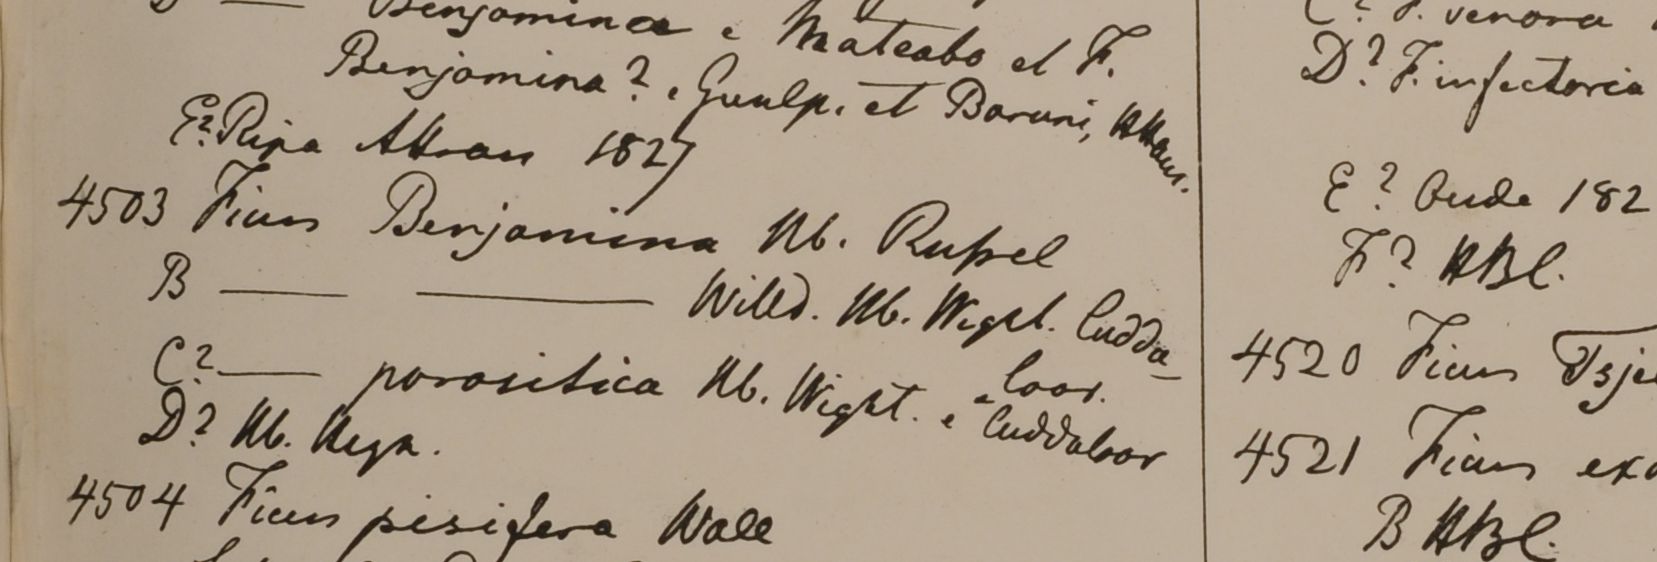 Benjaminea e Mateabo et F.
Benjamina? e Gualp. et Baruni, HHam.
E? Ripa Attran 1827
4503 Ficus Benjamina Hb. Rußel
B — — Willd. Hb. Wight. Cudda-
loor.
C? — parasitica Hb. Wight. e Cuddaloor
D? Hb. Heyn.
4504 Ficus pisifera Wall
C? F. venosa
D? F. infectoria
E? Oude 182
F? HBC.
4520 Ficus Tsje
4521 Ficus exa
B HBC.